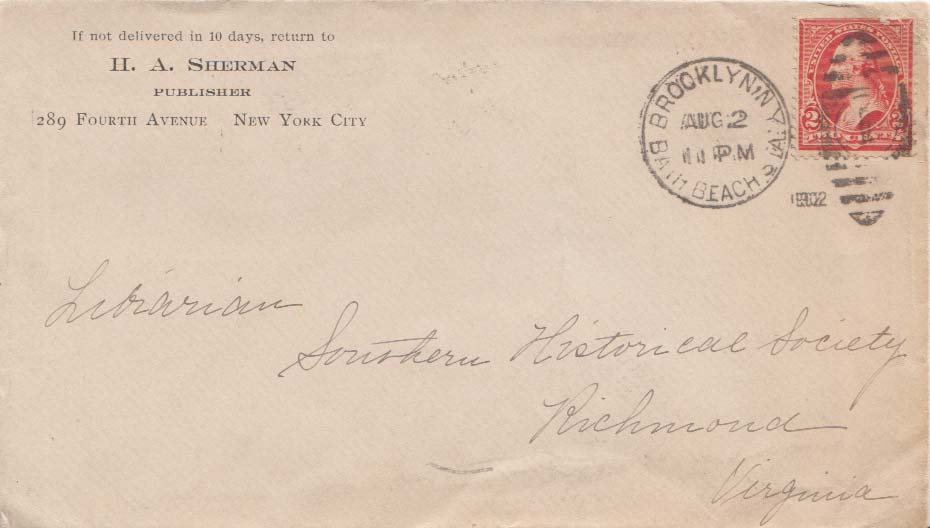 If not delivered in 10 days, return to
H. A. SHERMAN
PUBLISHER
289 FOURTH AVENUE NEW YORK CITY
BROOKLYN, N.Y.
AUG 2
PM
BATH BEACH STA.
1902
UNITED STATES POSTAGE
2 2
TWO CENTS
Librarian
Southern Historical Society
Richmond
Virginia